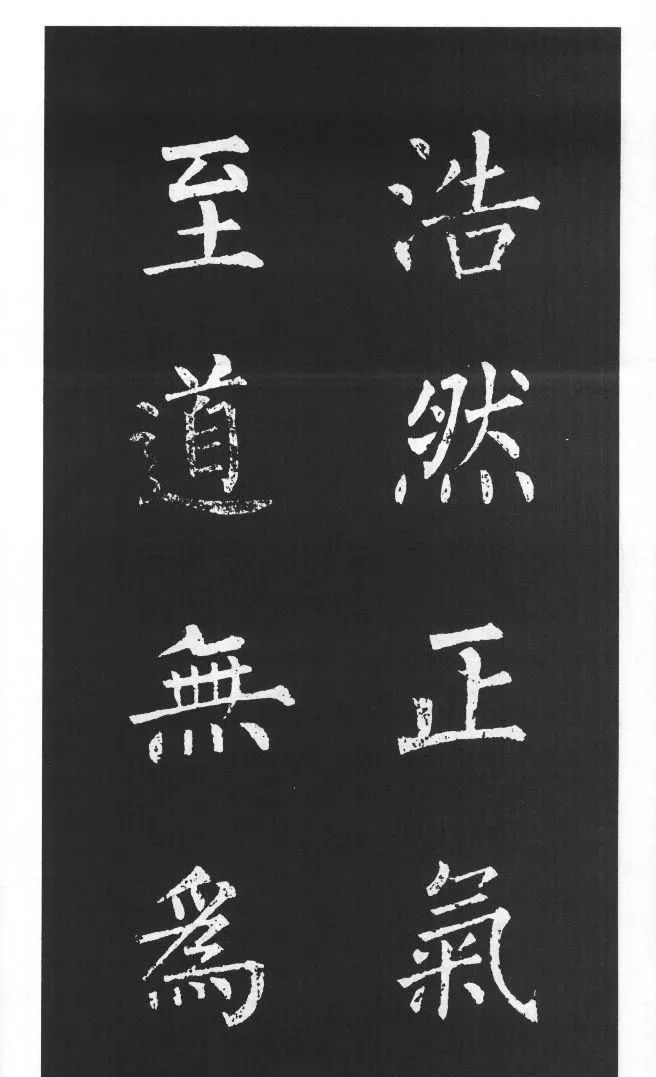 浩然正氣
至道無爲